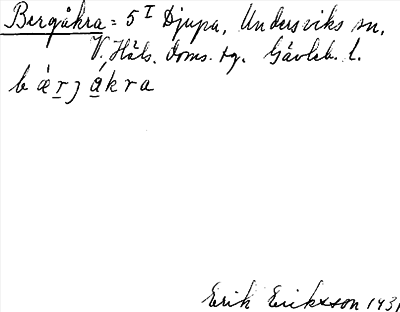 Bergåkra = 5 I Djupa, Undersviks sn,
V. Häls. doms. sg. Gävleb. l.
bärjåkra
Erik Eriksson 1931